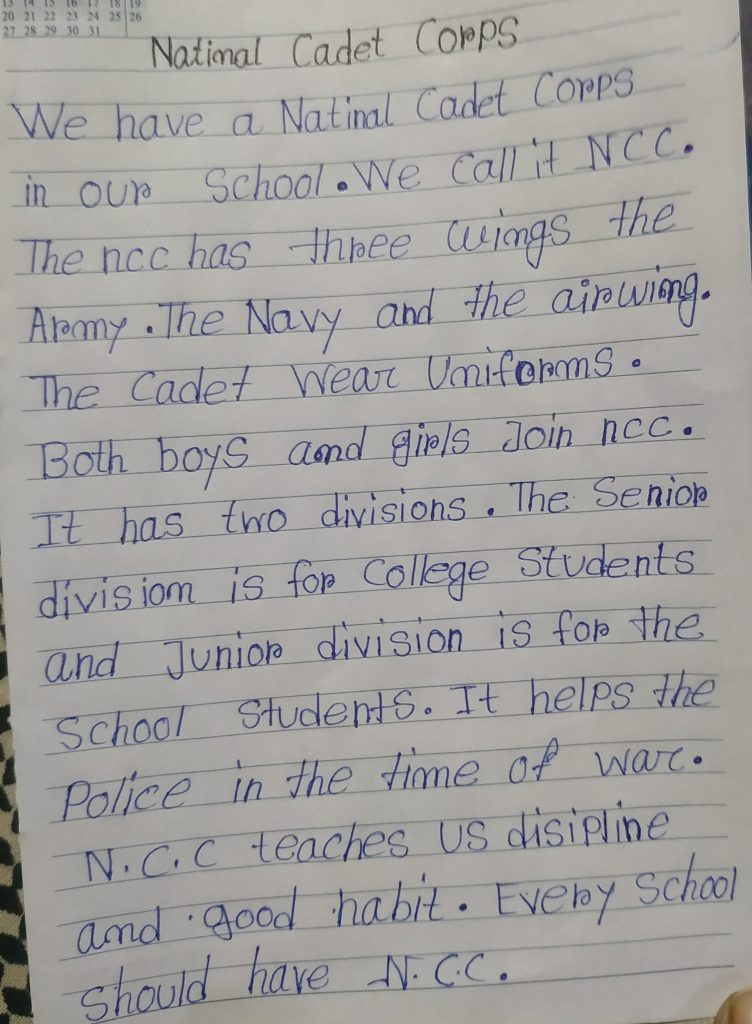 13 14 15 16 17 18 19
20 21 22 23 24 25 26
27 28 29 30 31
Natimal Cadet Corps
We have a Natinal Cadet Corps
in our School. We Call it NCC.
The ncc has three wings the
Army. The Navy and the airwimg.
The Cadet Wear Umiforms.
Both boys amd girls Join ncc.
It has two divisions. The Senior
divisiom is for College Students
and Junior division is for the
School Students. It helps the
Police in the time of war.
N.C.C teaches us disipline
amd good habit. Every School
should have N.C.C.